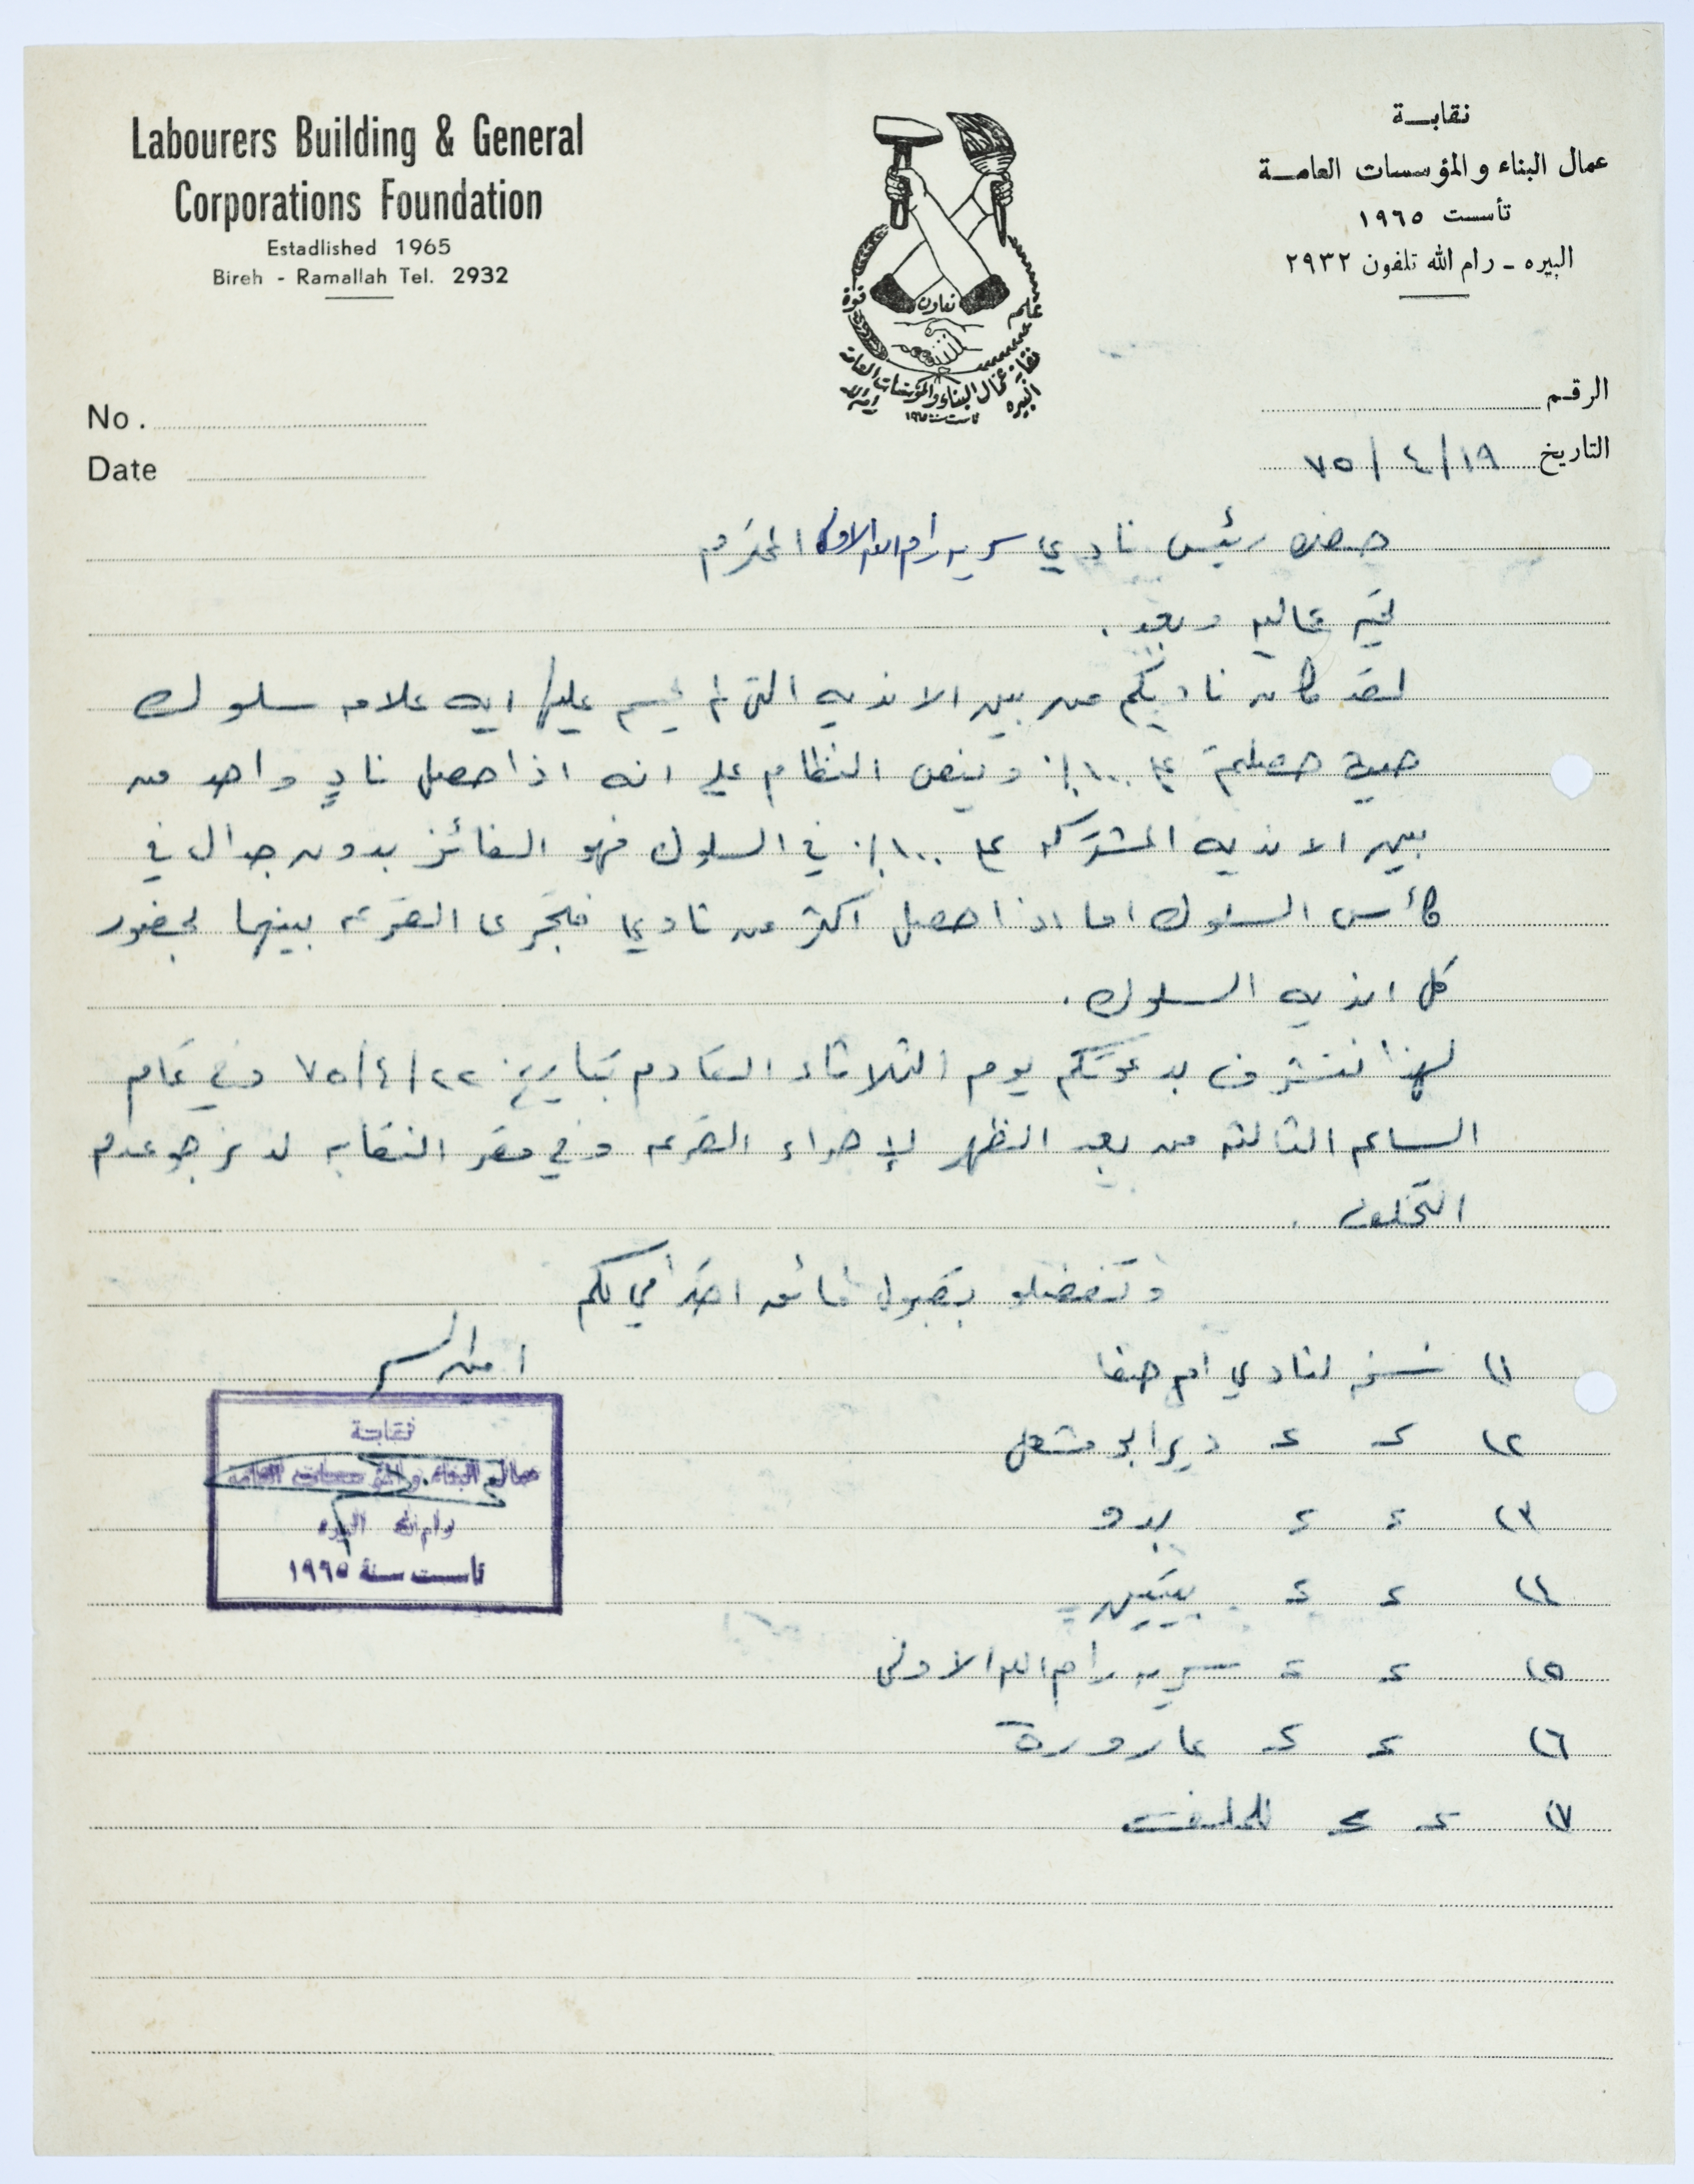 Labourers Building & General
Corporations Foundation
Estadlished 1965
Bireh - Ramallah Tel. 2932
نقابة
عمال البناء والمؤسسات العامة
تأسست ١٩٦٥
البيره - رام الله تلفون ٢٩٣٢
قوة
تعاون
علم
نقابة عمال البناء والمؤسسات العامة
البيره رام الله
تأسست سنة ١٩٦٥
No.
Date
الرقم
التاريخ ١٩/٤/٧٥
حضرة رئيس نادي سرية رام الله الاولى المحترم
تحيه عاليه وبعد.
لقد كان ناديكم من بين الانديه التي لم يحسم عليها ايه علامه سلوك
حيث حصلتم على ١٠٠٪ وينص النظام على انه اذا حصل نادٍ واحد من
بين الانديه المشتركه على ١٠٠٪ في السلوك فهو الفائز بدون جدال في
كأس السلوك اما اذا حصل اكثر من نادي فتجرى القرعه بينهما بحضور
كل انديه السلوك.
لهذا نتشرف بدعوتكم يوم الثلاثاء القادم بتاريخ ٢٢/٤/٧٥ وفي تمام
الساعه الثالثه من بعد الظهر لإجراء القرعه وفي مقر النقابه لذ نرجو عدم
التخلف.
وتفضلو بقبول فائق احترامي لكم
امين السر
١) نسخه لنادي ام صفا
٢) = = دير ابو مشعل
٣) = = بدو
٤) = = بيتين
٥) = = سريه رام الله الاولى
٦) = = عارورة
٧) = = للملف
نقابة
عمال البناء والمؤسسات العامه
رام الله البيره
تأسست سنة ١٩٦٥